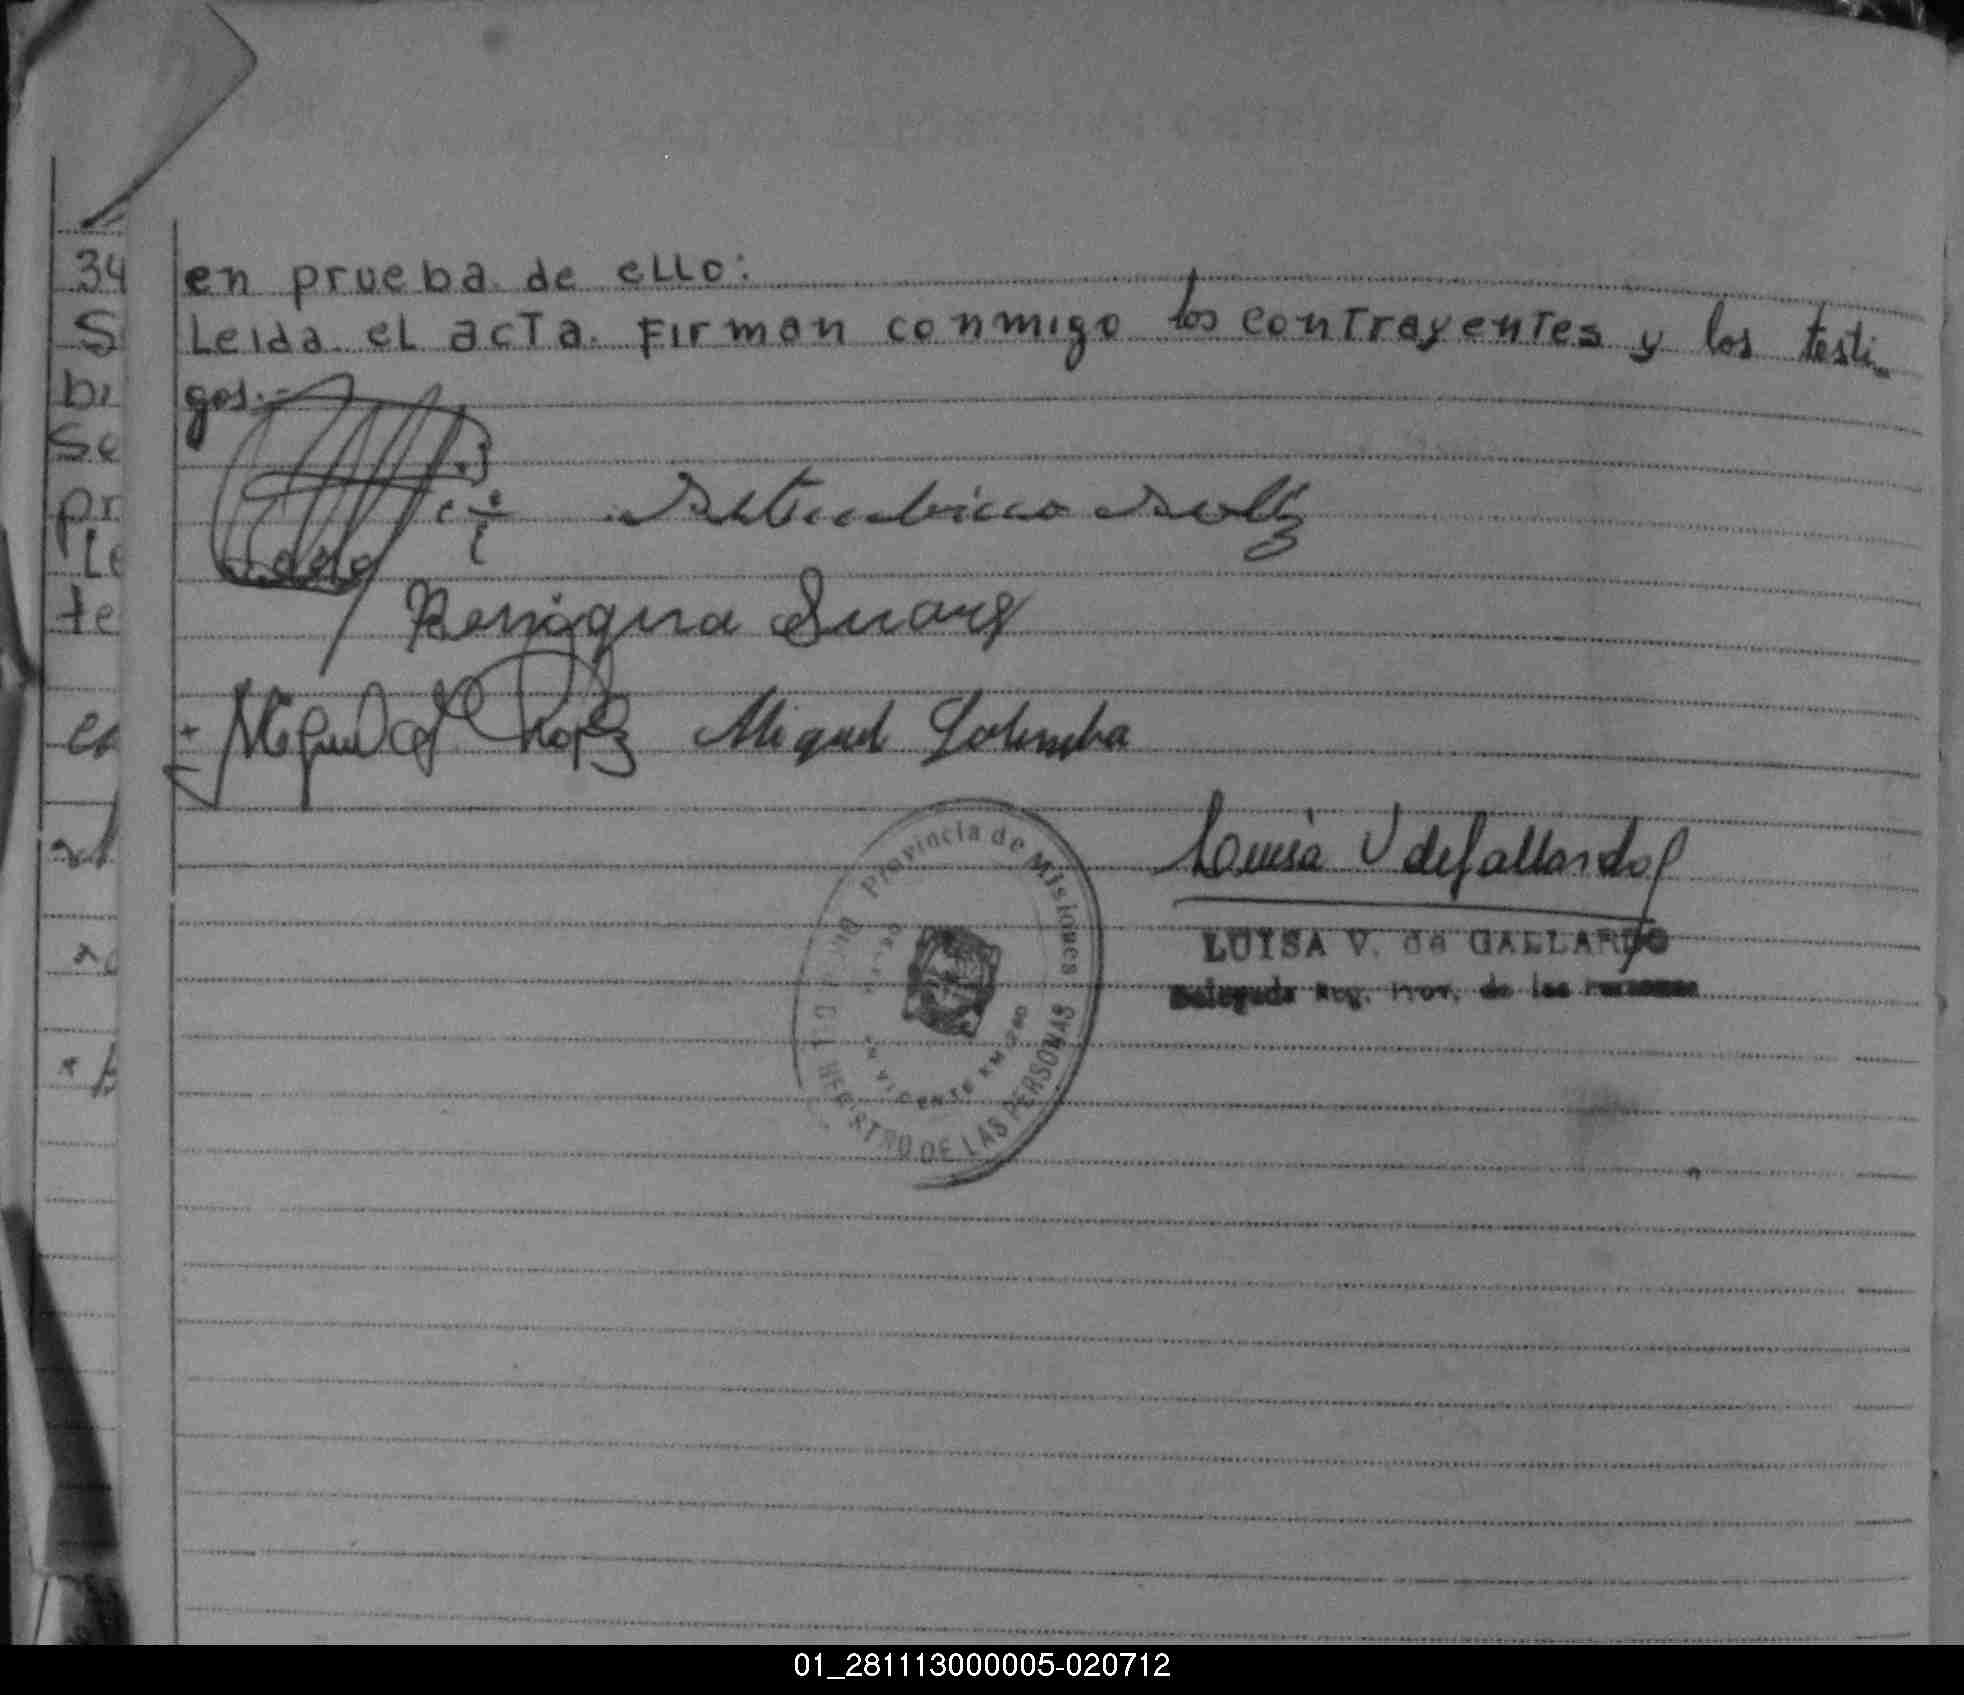 34
en prueba de ello:
S
Leida el acta. Firman conmigo los contrayentes y los testi-
bi
gos.-
se
pr
Le
te
Benigna Suarez
Miguel A Lopez Miguel
Luisa V de Gallardo
LUISA V. de GALLARDO
Delegada Reg. Prov. de las Personas
Provincia de Misiones
REGISTRO DE LAS PERSONAS
VICENTE KM
01_281113000005-020712